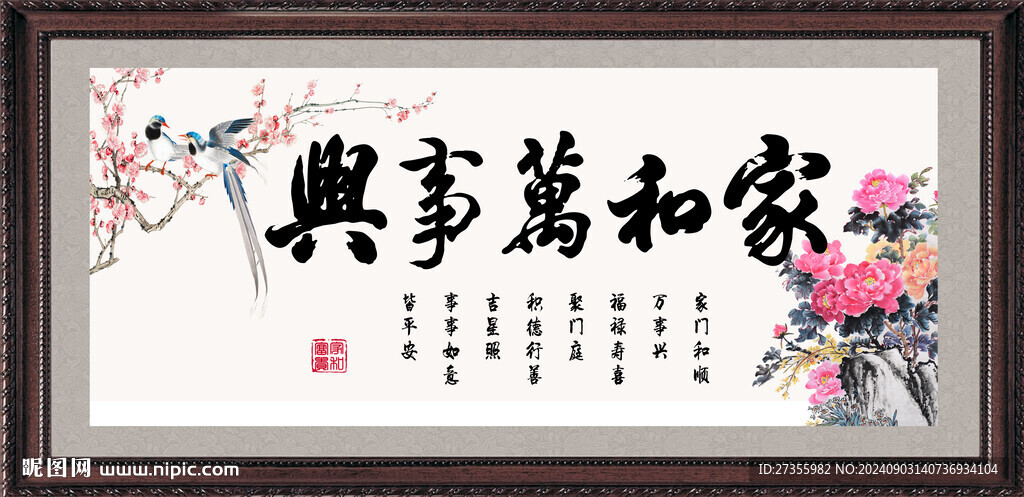 家和萬事興
家门和顺
万事兴
福禄寿喜
聚门庭
积德行善
吉星照
事事如意
皆平安
家和
富貴
昵图网 www.nipic.com
ID:27355982 NO:20240903140736934104